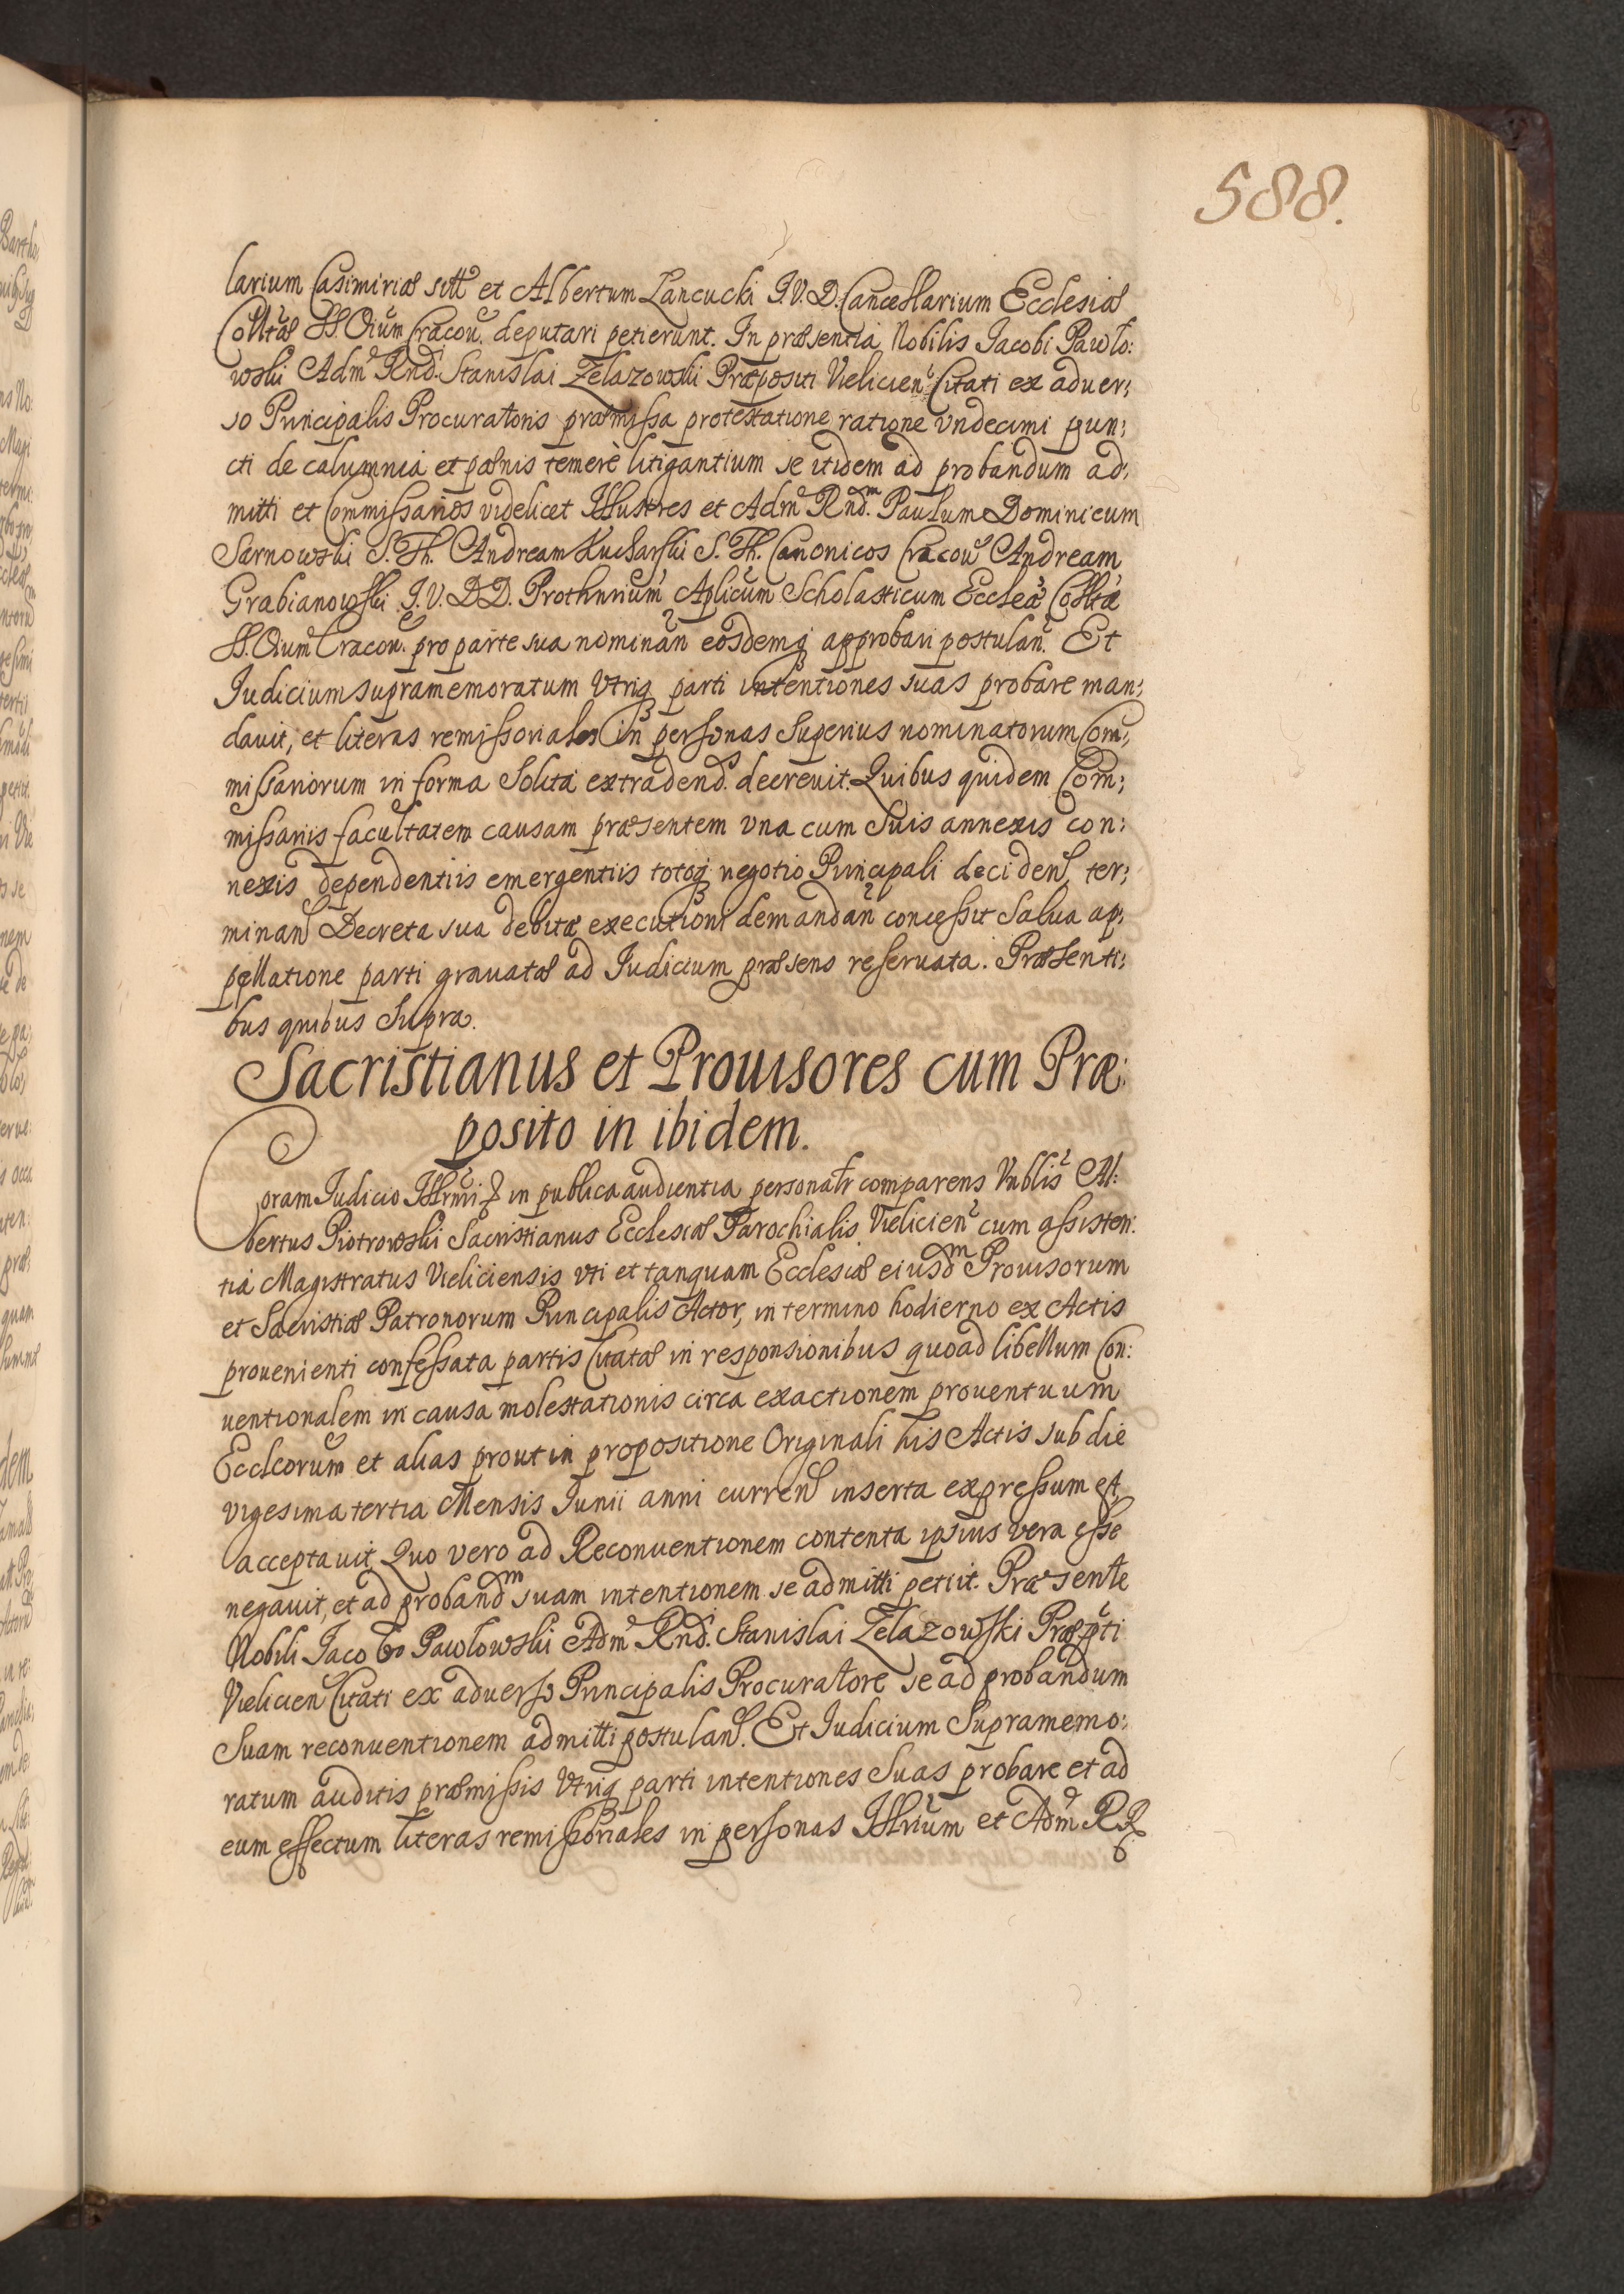 588.
larium Casimiriæ sitt et Albertum Lancucki I.V.D. Cancellarium Ecclesiæ
Colltæ SS. Oium Cracou. deputari petierunt. In præsentia Nobilis Jacobi Pawlo:
wski Adm Rnd. Stanislai Zelazowski Præpositi Vielicien Citati ex aduer:
so Principalis Procuratoris præmissa protestatione ratione vndecimi pun:
cti de calumnia et pænis temerè litigantium se itidem ad probandum ad:
mitti et Commissarios videlicet Illustres et Adm Rndm. Paulum Dominicum
Sarnowski S. Th. Andream Kucharski S. Th. Canonicos Cracou Andream
Grabianowski I.V.DD. Prothnrium Aplicum Scholasticum Eccleæ Colltæ
SS. Oium Cracou. pro parte sua nominan eosdemq approbari postulan. Et
Iudicium supramemoratum Vtriq parti intentiones suas probare man:
dauit, et literas remissoriales in personas Superius nominatorum Com:
missariorum in forma Solita extradend. decreuit. Quibus quidem Com:
missariis facultatem causam præsentem vna cum Suis annexis con:
nexis dependentiis emergentiis totoq negotio Principali deciden ter:
minan Decreta sua debitæ executioni demandan concessit Salua ap:
pellatione parti grauatæ ad Iudicium præsens reseruata. Præsenti:
bus quibus Supra.
Sacristianus et Prouisores cum Præ:
posito in ibidem.
Coram Iudicio Illrmi & in publica audientia personatr comparens Vnblis Al:
bertus Piotrowski Sacristianus Ecclesiæ Parochialis Vielicien cum assisten:
tia Magistratus Vieliciensis vti et tanquam Ecclesiæ eiusdm Prouisorum
et Sacristiæ Patronorum Principalis Actor, in termino hodierno ex Actis
prouenienti confessata partis Citatæ in responsionibus quoad libellum Con:
uentionalem in causa molestationis circa exactionem prouentuum
Ecclcorum et alias prout in propositione Originali his Actis sub die
vigesima tertia Mensis Iunii anni curren inserta expressum est,
acceptauit, Quo vero ad Reconuentionem contenta ipsius vera esse
negauit, et ad probandm suam intentionem se admitti petiit. Præsente
Nobili Iacobo Pawlowski Adm Rnd. Stanislai Zelazowski Præpti
Vielicien Citati ex aduerso Principalis Procuratore se ad probandum
Suam reconuentionem admitti postulan. Et Iudicium Supramemo:
ratum auditis præmissis Vtriq parti intentiones Suas probare et ad
eum effectum literas remissoriales in personas Illrium et Adm RR